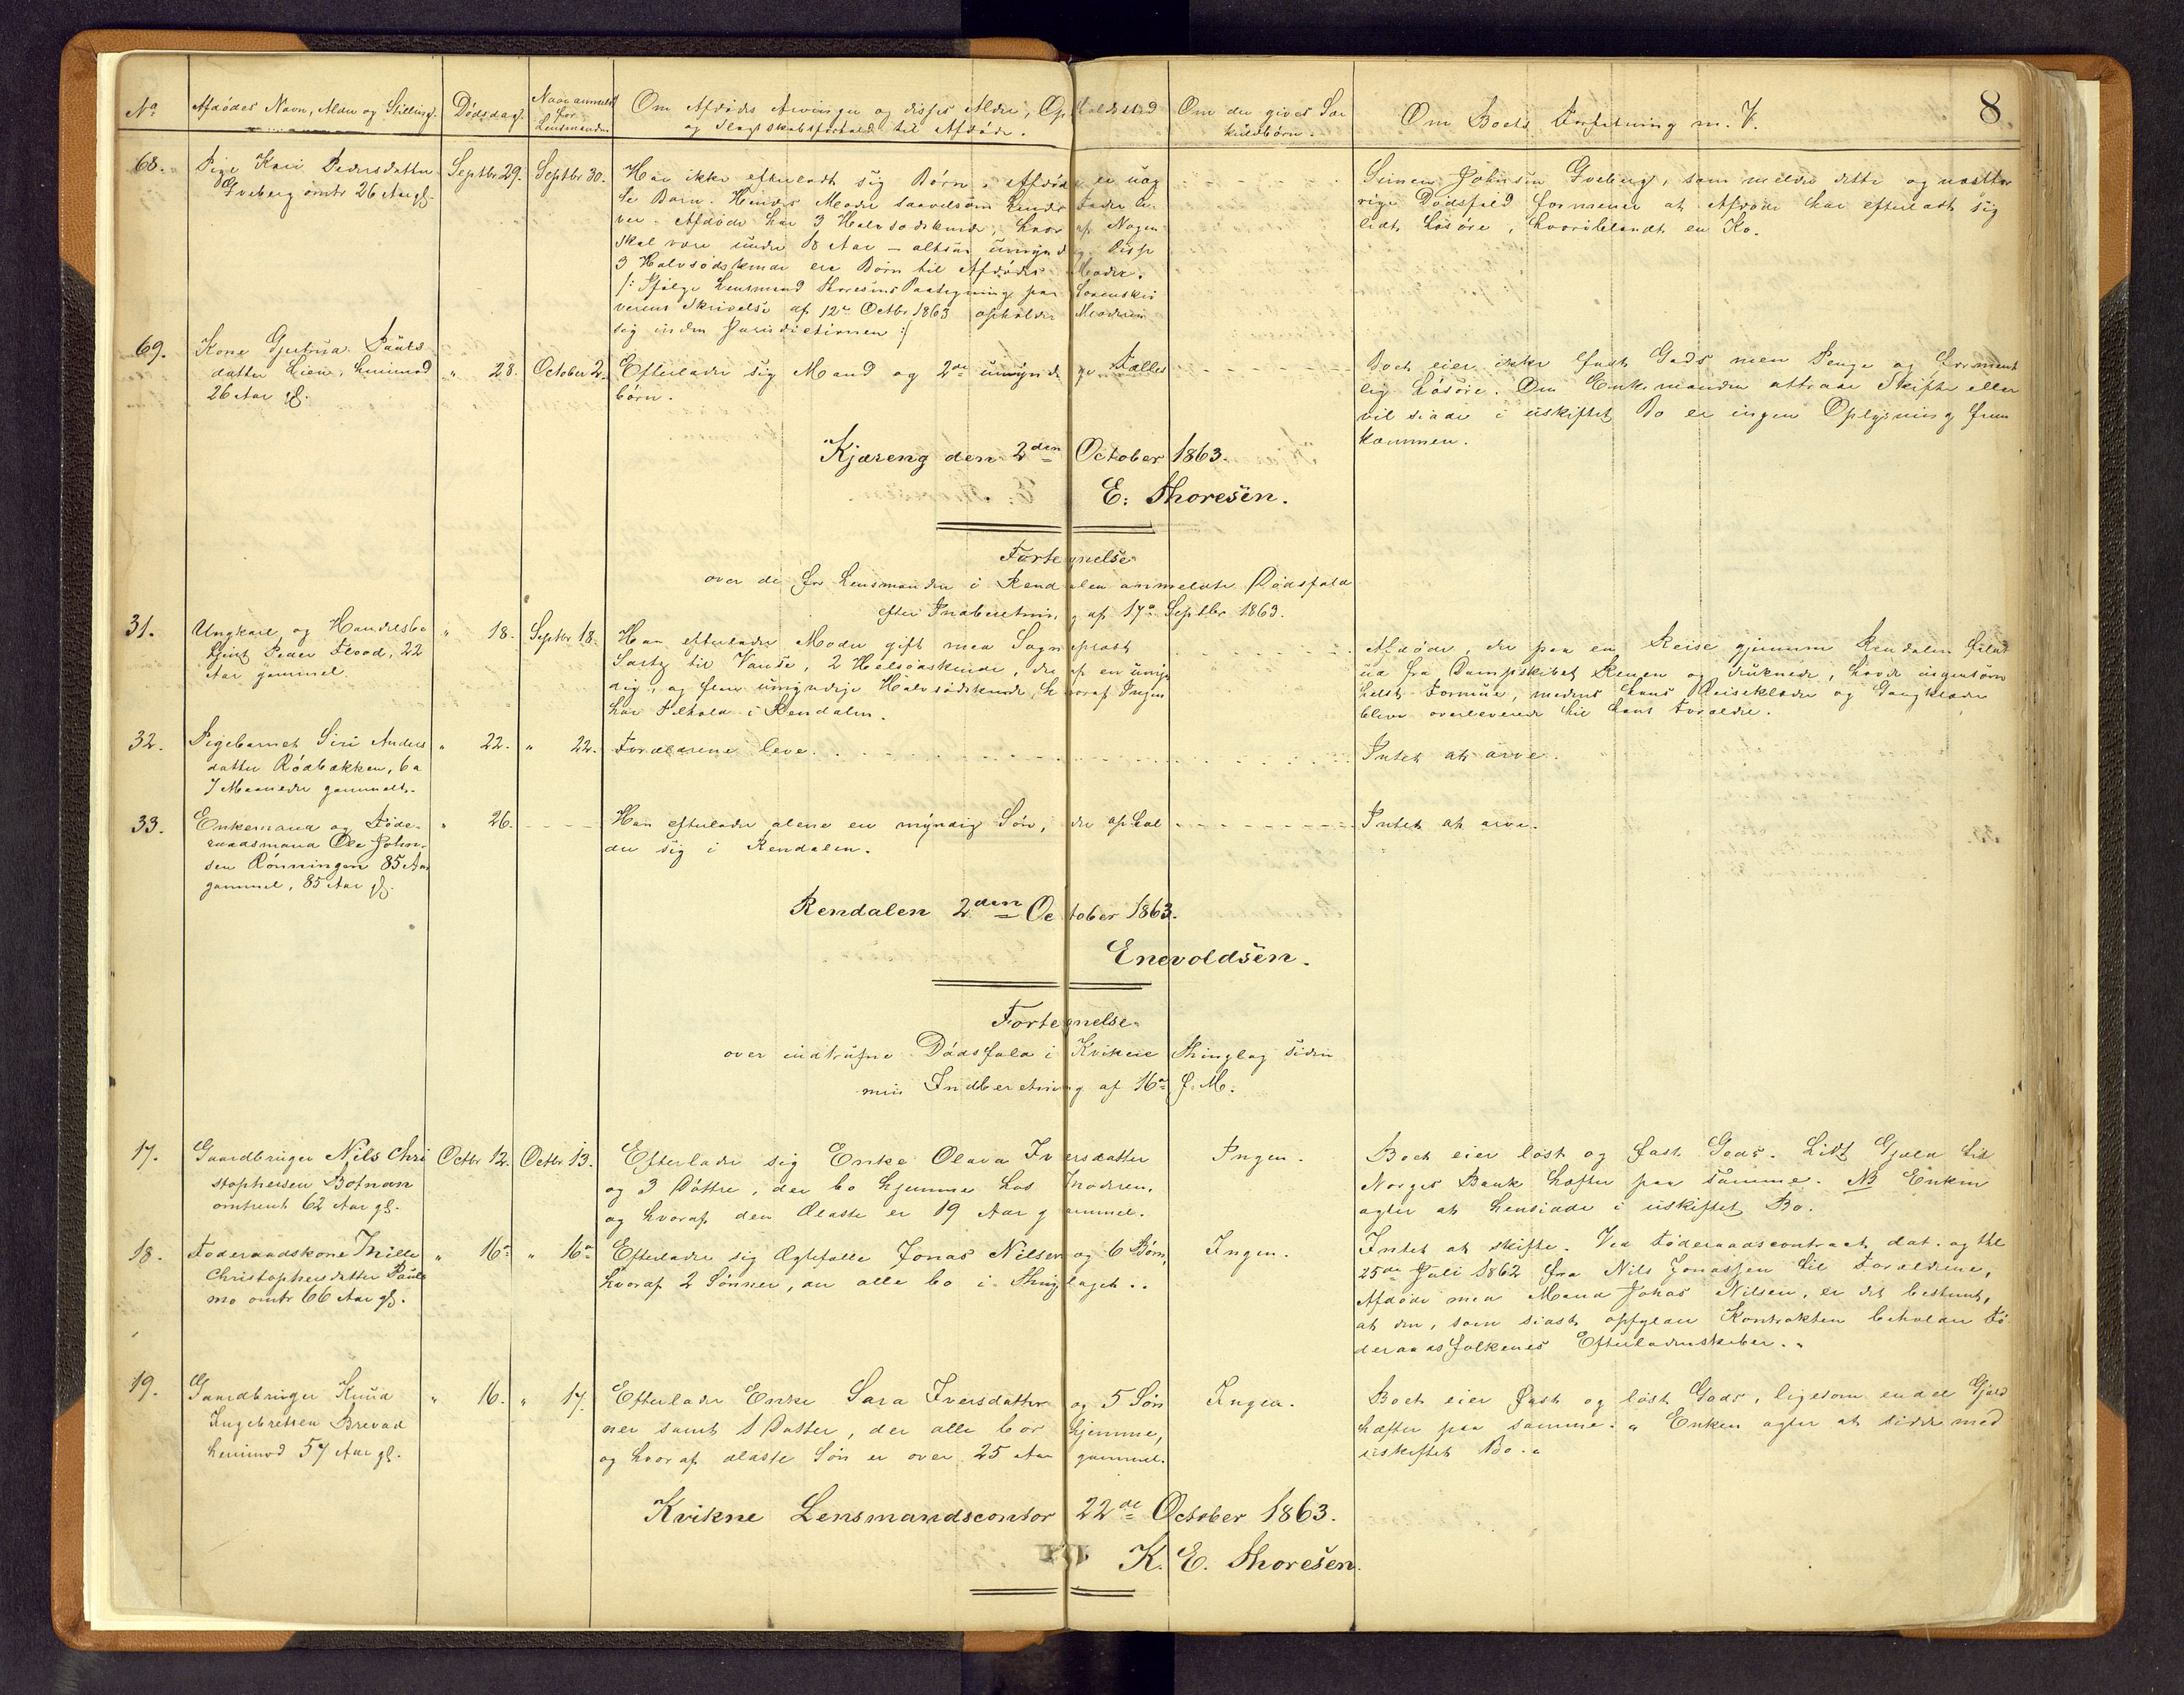 8
No
Afdödes Navn, Alder og Stilling.
Dödsdag.
Naar anmeldt
for
Lensmanden
Om Afdödes Arvinger og disses Alder, Opholdssted
og Slægtskabsforhold til Afdöde.
Om der gives Sær
kuldbörn.
Om Boets Forfatning m. V.
68.
Pige Kari Pedersdatter
Grøberg omtr 26 Aar gl.
Septbr 29.
Septbr 30.
Har ikke efterladt sig Börn. Afdöde er uæg
te Barn. Hendes Moder saavelsom hendes Fader le
ver. Afdöde har 3 Halvsödskende, hvoraf Nogen
skal være under 18 Aar – altsaa umyndig. Disse
3 Halvsödskende ere Börn til Afdödes Moder.
/: Ifølge Lensmand Thoresens Paategning paa Sorenskri
verens Skrivelse af 12te Octbr 1863 opholder Moderen
sig inden Jurisdictionen :/
Simen Johnsen Grøberg, som melder dette og
Dödsfald formener at Afdöde har efterladt sig
lidt Lösöre, hvoriblandt en Ko.
69.
Kone Gjertrud Pauls
datter Lien, henimod
26 Aar gl.
" 28.
October 2.
Efterlader sig Mand og 2de umyndige Fælles
börn.
Boet eier ikke fast Gods men Penge og
lig Lösöre. Om Enkemanden attraar Skifte eller
vil sidde i uskiftet Bo er ingen Oplysning frem
kommen.
Kjæreng den 2den October 1863.
E. Thoresen.
Fortegnelse
over de for Lensmanden i Rendalen anmeldte Dödsfald
efter Indberetning af 17de Septbr 1863.
31.
Ungkarl og Handelsbe
tjent Peder Flood, 22
Aar gammel.
" 18.
Septbr 18.
Han efterlader Moder gift med Sogneprest
Sartz til Vanse, 2 Helsödskende, der af en umyn
dig, og flere umyndige Halvsödskende, hvoraf Ingen
har Tilhold i Rendalen.
Afdöde, der paa en Reise gjennem Rendalen faldt
ud fra Dampskibet Renen og druknede, havde ingensom
helst Formue, medens hans Reiseklæder og Gangklæder
bleve overleverede til hans Forældre.
32.
Pigebarnet Siri Anders
datter Rödbækken, 6 a
7 Maaneder gammelt.
" 22.
" 22.
Forældrene leve.
Intet at arve.
33.
Enkemand og Föde-
raadsmand Ole John-
sen Rönningen 85 Aar
gammel, 85 Aar gl.
" 26.
Han efterlader alene en myndig Sön, der ophol
der sig i Rendalen.
Intet at arve.
Rendalen 2den October 1863.
Enevoldsen.
Fortegnelse
over indtrufne Dödsfald i Kvikne Thinglag siden
min Indberetning af 16de f. M.
17.
Gaardbruger Nils Chri
stophersen Botnan
omtrent 62 Aar gl.
Octbr 12.
Octbr 13.
Efterlader sig Enke Olava Iversdatter
og 3 Döttre, der bo hjemme hos Moderen,
og hvoraf den Ældste er 19 Aar gammel.
Ingen.
Boet eier löst og fast Gods. Lidt Gjæld til
Norges Bank hæfter paa samme. NB Enken
agter at hensidde i uskiftet Bo.
18.
Föderaadskone Thrille
Christophersdatter Pauls
mo omtr 66 Aar gl.
" 16de
" 16de
Efterlader sig Ægtefælle Jonas Nilsen og 6 Börn,
hvoraf 2 Sönner, der alle bo i Thinglaget.
Ingen.
Intet at skifte. Ved Föderaadscontract, dat. og thl
25de Juli 1862 fra Nils Jonassen til Forældrene,
Afdöde med Mand Jonas Nilsen, er det bestemt,
at den, som sidst opfylder Kontrakten beholder Fö
deraadsfolkenes Efterladenskaber.
19.
Gaardbruger Knud
Ingebretsen Brevad
henimod 57 Aar gl.
" 16.
" 17.
Efterlader Enke Sara Iversdatter og 5 Sön
ner samt 1 Datter, der alle bor hjemme,
og hvoraf ældste Sön er over 25 Aar gammel.
Ingen.
Boet eier fast og löst Gods, ligesom endel Gjæld
hæfter paa samme. " Enken agter at sidde med
uskiftet Bo.
Kvikne Lensmandscontor 22de October 1863.
K. E. Thoresen.